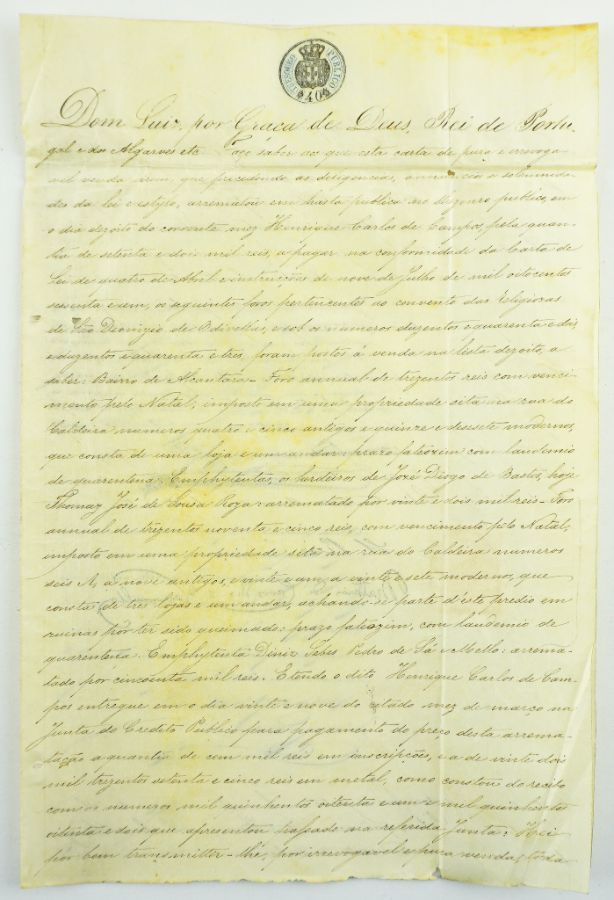 THESOURO PUBLICO
40
Dom Luiz, por Graça de Deus, Rei de Portu-
gal e dos Algarves etc Faço saber aos que esta carta de pura e irrevoga-
vel venda virem, que precedendo as diligencias, annuncios e solemnida-
des da lei e estylo, arrematou em hasta publica no thezouro publico, em
o dia dezoito do corrente mez Henrique Carlos de Campos, pela quan-
tia de setenta e dois mil reis, a pagar na conformidade da Carta de
Lei de quatro de Abril e instrucções de nove de Julho de mil oitocentos
sessenta e um, os seguintes foros pertencentes ao convento das Religiosas
de São Dionizio de Odivellas, e sob os numeros duzentos e quarenta e dois
e duzentos e quarenta e tres, foram postos á venda na lista dezoito, a
saber: Bairro de Alcantara. Foro annual de trezentos reis com venci-
mento pelo Natal, imposto em uma propriedade sita na rua do
Caldeira numeros quatro e cinco antigos e quinze e desesete modernos,
que consta de uma loja e um andar: prazo fateozim com laudemio
de quarentena. Emphyteutas, os herdeiros de José Diogo de Bastos, hoje
Thomaz José de Sousa Roza: arrematado por vinte e dois mil reis - Foro
annual de trezentos noventa e cinco reis, com vencimento pelo Natal,
imposto em uma propriedade sita na rua do Caldeira numeros
seis A, a nove antigos, e vinte e um, a vinte e sete modernos, que
consta de tres lojas e um andar, achando-se parte d'este predio em
ruinas por ter sido queimado: prazo fateozim, com laudemio de
quarentena. Emphyteuta Diniz Pedro de Sá e Mello: arrema-
tado por cincoenta mil reis. E tendo o dito Henrique Carlos de Cam-
pos entregue em o dia vinte e nove do citado mez de março na
Junta do Credito Publico para pagamento do preço desta arrema-
tação a quantia de cem mil reis em inscripções, e a de vinte dois
mil trezentos setenta e cinco reis em metal, como constou do recibo
com os numeros mil quinhentos oitenta e um e mil quinhentos
oitenta e dois que apresentou passado na referida Junta: Hei
por bem transmittir-lhe, por irrevogavel e pura venda, toda